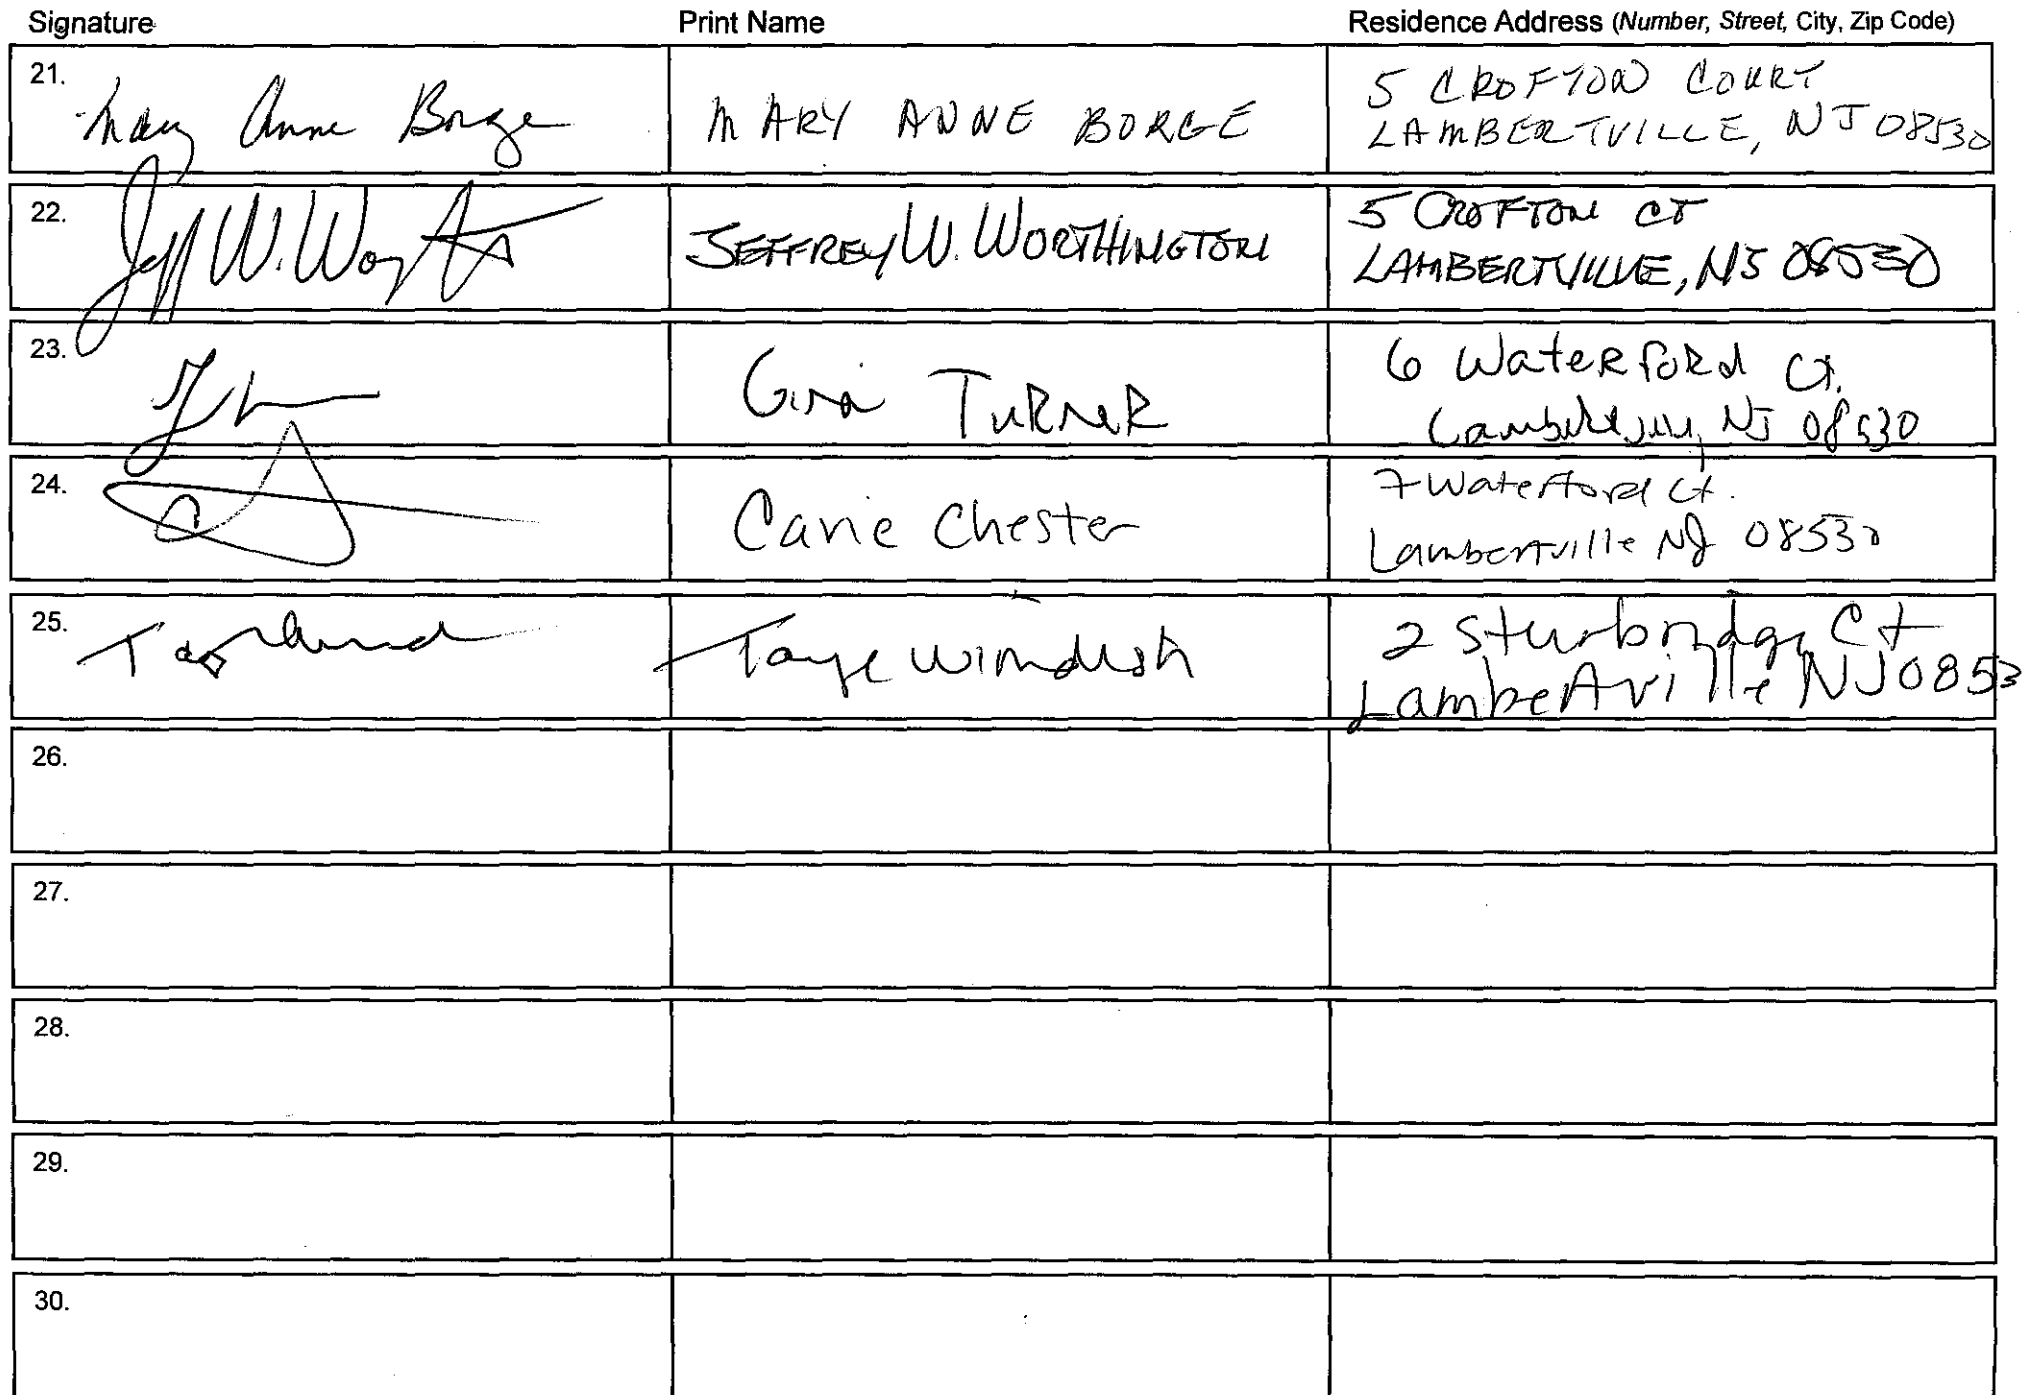 Signature Print Name Residence Address (Number, Street, City, Zip Code)
21. Mary Anne Borge MARY ANNE BORGE 5 CROFTON COURT
LAMBERTVILLE, NJ 08530
22. Jeff W. Wor JEFFREY W. WORTHINGTON 5 CROFTON CT
LAMBERTVILLE, NJ 08530
23. Gina TURNER 6 Waterford Ct.
Lambertville, NJ 08530
24. Carie Chester 7 Waterford Ct.
Lambertville NJ 08530
25. Taye Windish 2 Sturbridge Ct
Lambertville NJ 0853
26.
27.
28.
29.
30.